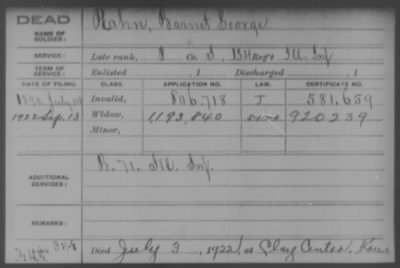 DEAD
NAME OF SOLDIER: Rohn, Barnit George
SERVICE: Late rank, Co. I, Reg't Ill. Inf.
TERM OF SERVICE: Enlisted , 1 Discharged , 1
DATE OF FILING. CLASS. APPLICATION NO. LAW. CERTIFICATE NO.
1890 July 14 Invalid, 806.718 J 581.659
1922 Sep. 13 Widow, 1193.840 920239
Minor,
ADDITIONAL SERVICES: B. 71. Ill. Inf.
REMARKS:
Died July 3, 1922, at Clay Center, Kans